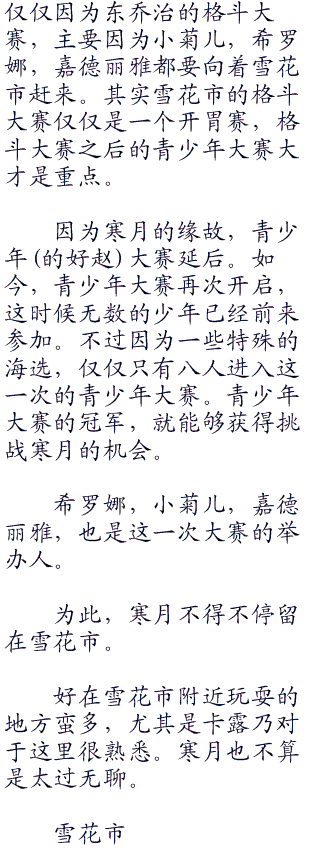 仅仅因为东乔治的格斗大
赛，主要因为小菊儿，希罗
娜，嘉德丽雅都要向着雪花
市赶来。其实雪花市的格斗
大赛仅仅是一个开胃赛，格
斗大赛之后的青少年大赛大
才是重点。
因为寒月的缘故，青少
年(的好赵)大赛延后。如
今，青少年大赛再次开启，
这时候无数的少年已经前来
参加。不过因为一些特殊的
海选，仅仅只有八人进入这
一次的青少年大赛。青少年
大赛的冠军，就能够获得挑
战寒月的机会。
希罗娜，小菊儿，嘉德
丽雅，也是这一次大赛的举
办人。
为此，寒月不得不停留
在雪花市。
好在雪花市附近玩耍的
地方蛮多，尤其是卡露乃对
于这里很熟悉。寒月也不算
是太过无聊。
雪花市